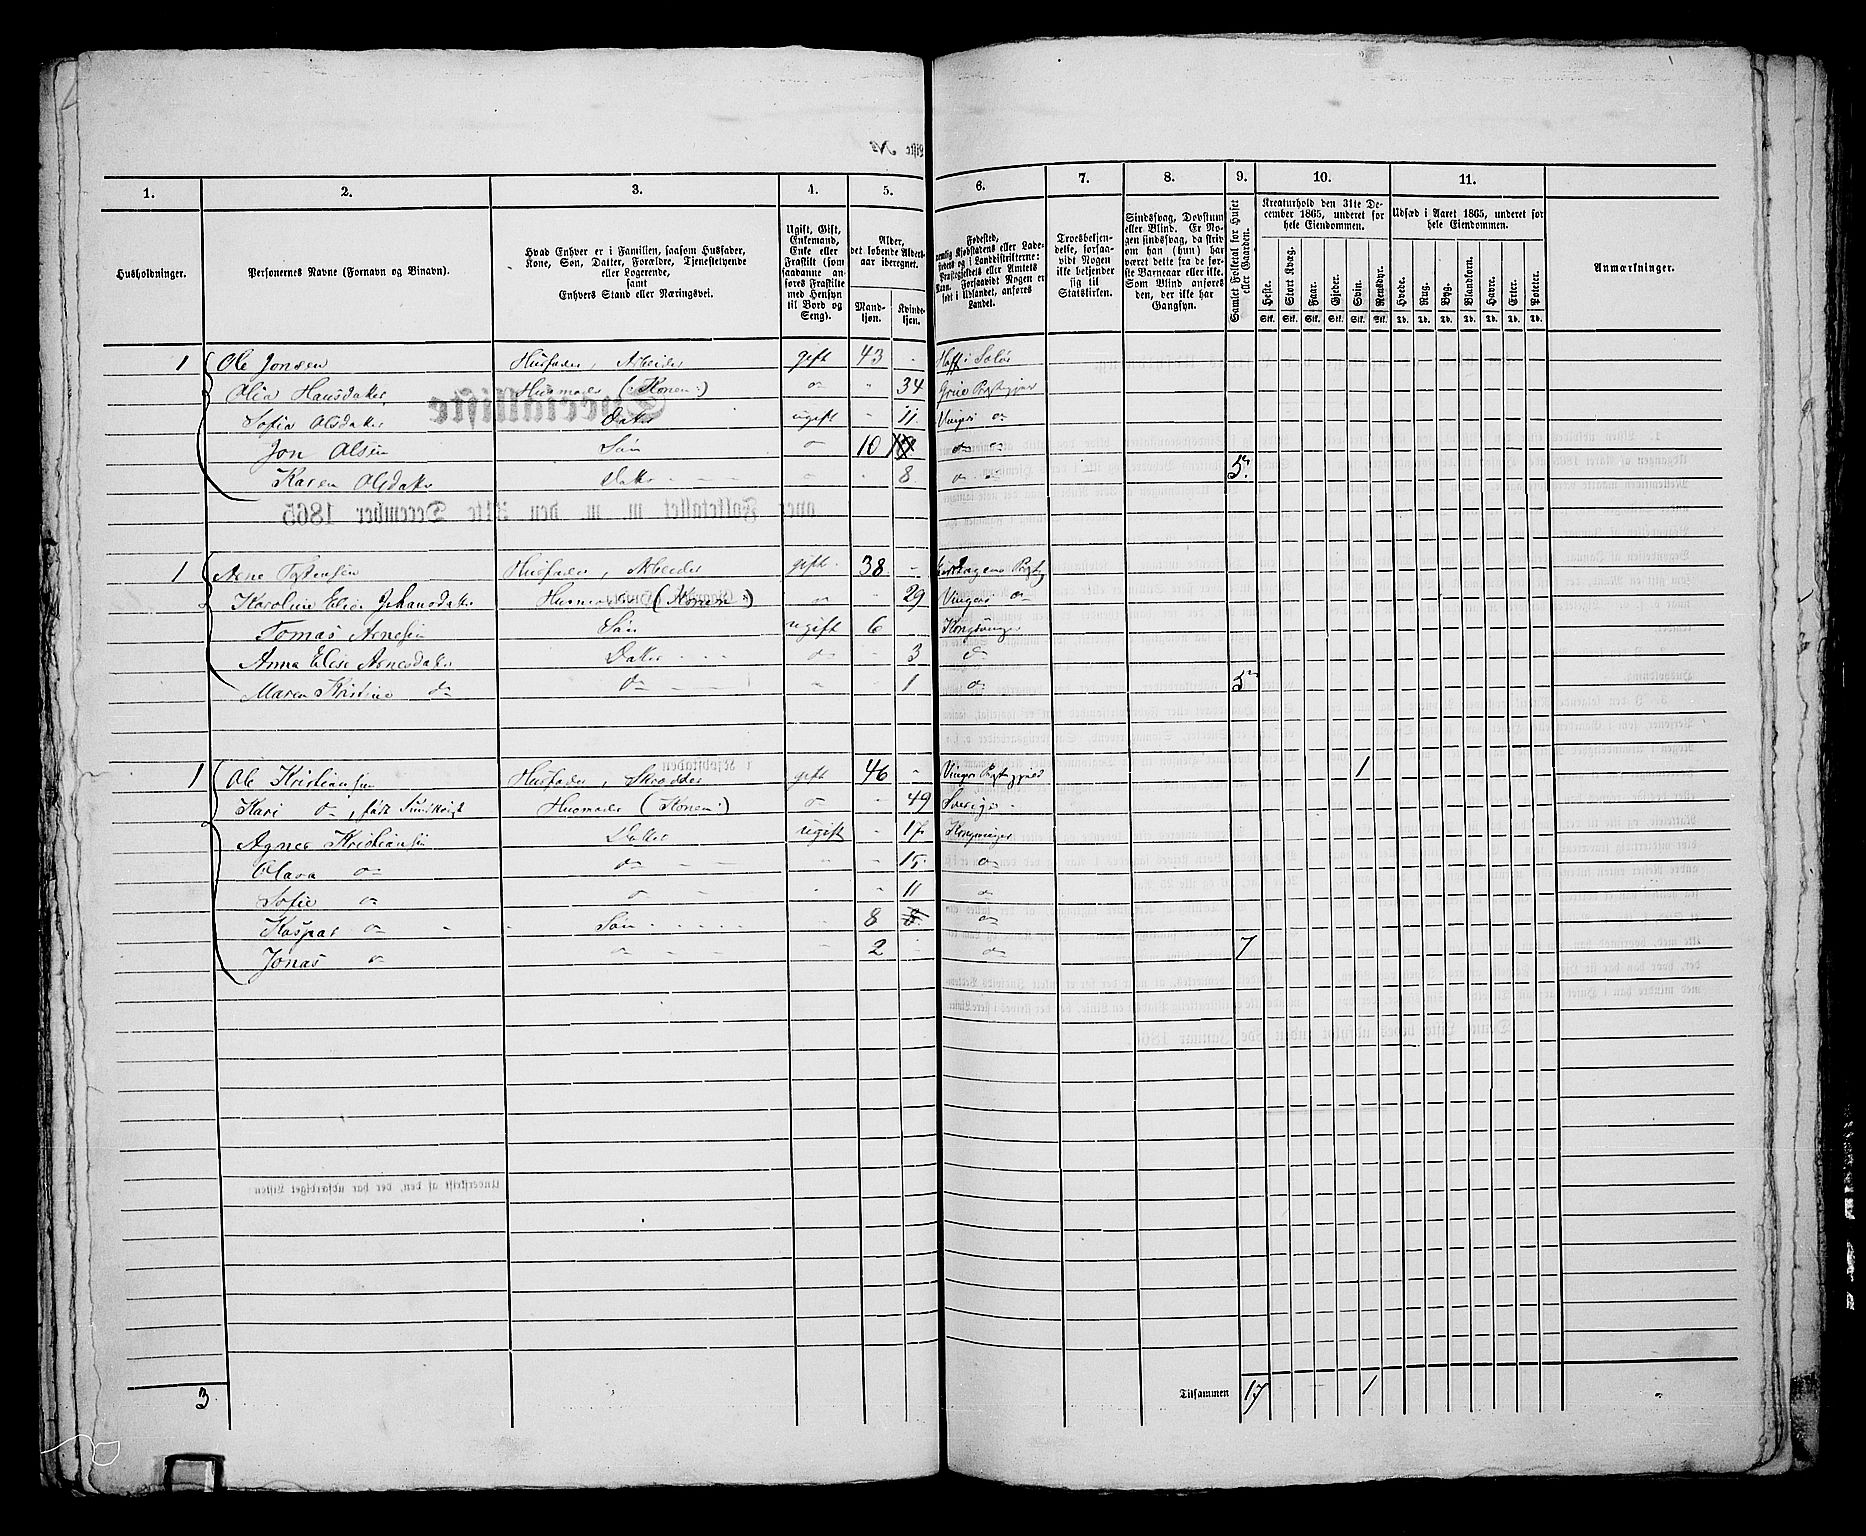 1. 2. 3. 4. 5. 6. 7. 8. 9. 10. 11.
Husholdninger.
Personernes Navne (Fornavn og Binavn).
Hvad Enhver er i Familien, saasom Husfader,
Kone, Søn, Datter, Forældre, Tjenestetyende
eller Logerende,
samt
Enhvers Stand eller Næringsvei.
Ugift, Gift,
Enkemand,
Enke eller
Fraskilt (som
saadanne an-
føres Fraskilte
med Hensyn
til Bord og
Seng).
Alder,
det løbende Alders-
aar iberegnet.
Mand-
kjøn.
Kvinde-
kjøn.
Fødested,
nemlig Kjøbstadens eller Lade-
stedets og i Landdistrikterne:
Præstegjeldets eller Amtets
Navn. Forsaavidt Nogen er
født i Udlandet, anføres
Landet.
Troesbekjen-
delse, forsaa-
vidt Nogen
ikke bekjender
sig til
Statskirken.
Sindssvag, Døvstum
eller Blind. Er No-
gen sindssvag, da skriv
om han (hun) har
været dette fra de før-
ste Barneaar eller ikke.
Som Blind anføres
den, der ikke har
Gangsyn.
Samlet Folketal for Huset
eller Gaarden.
Kreaturhold den 31te De-
cember 1865, underet for
hele Eiendommen.
Heste. Stort Kvæg. Faar. Gjeder. Svin. Rensdyr.
Stk. Stk. Stk. Stk. Stk. Stk.
Udsæd i Aaret 1865, underet for
hele Eiendommen.
Hvede. Rug. Byg. Blandkorn. Havre. Erter. Poteter.
Td. Td. Td. Td. Td. Td. Td.
Anmærkninger.
1 Ole Jonsen Husfader, Arbeider gift 43 - Hoff i Solør
Olia Hansdatter Husmoder (Konen) do " 34 Grue Prstgjæl
Sofia Olsdatter Datter ugift - 11 Vinger do
Jon Olsen Søn do 10 do do
Karen Olsdatter Datter - - 8 do do 5
1 Arne Husfader, Arbeider gift 38 -
Karoline Elise Johansdatter Husmoder (Konen) do " 29 Vinger do
Tomas Arnesen Søn ugift 6 Kongsvinger
Anna Elise Arnesdatter Datter do - 3 do
Maren Kristine do do " - 1 do 5
1 Ole Kristiansen Husfader, Skrædder gift 46 - Vinger Prstgjæld 1
Kari do, født Husmoder (Konen) do " 49 Sverige
Agnes Kristiansen Datter ugift - 17 Kongsvinger
Olava do do " - 15 do
Sofie do do - 11 do
Kaspar do Søn " 8 8 do
Jonas do do " 2 do 7
3 Tilsammen 17 1